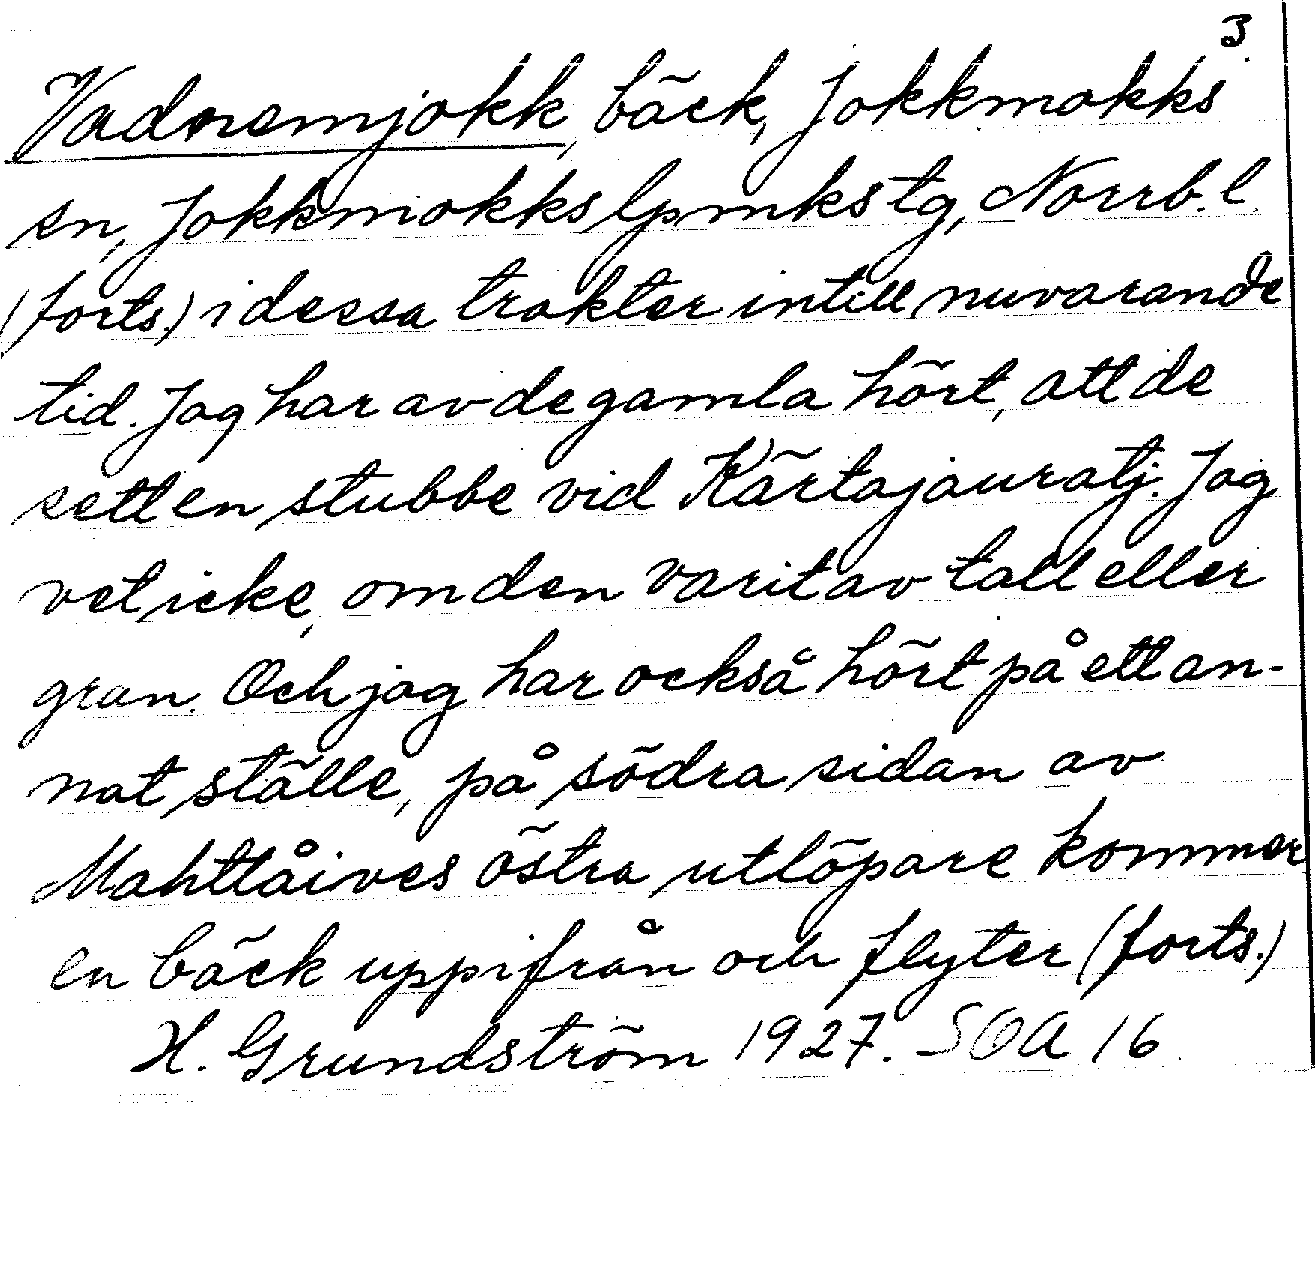 3
Vadnemjokk, bäck, Jokkmokks
sn, Jokkmokks lpmkstg, Norrb. l.
(forts.) i dessa trakter intill nuvarande
tid. Jag har av de gamla hört, att de
sett en stubbe vid Kärtajauratj. Jag
vet icke, om den varit av tall eller
gran. Och jag har också hört på ett an-
nat ställe, på södra sidan av
Mahttåives östra utlöpare kommer
en bäck uppifrån och flyter (forts.)
H. Grundström 1927. SOA 16